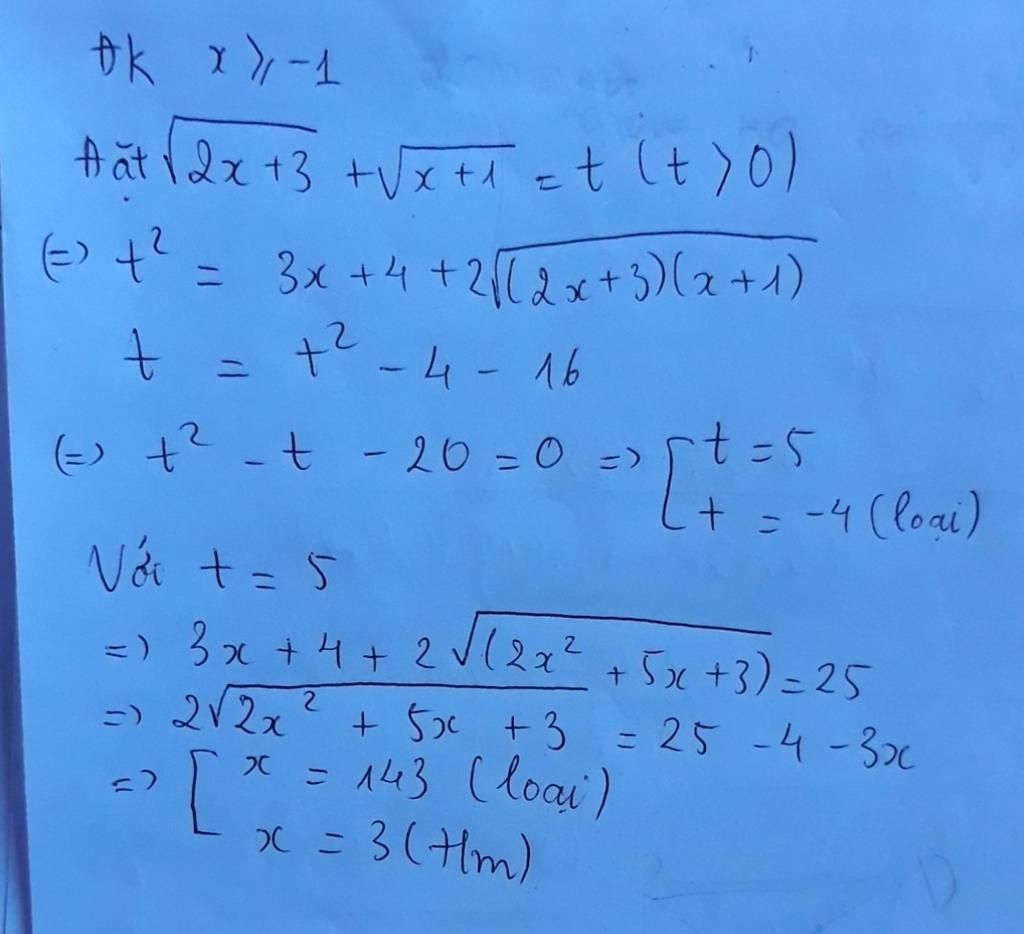 Đk x ⩾ -1
Đặt √(2x+3) + √(x+1) = t (t > 0)
(=) t² = 3x + 4 + 2√((2x+3)(x+1))
t = t² - 4 - 16
(=) t² - t - 20 = 0 => [ t = 5
t = -4 (loại)
Với t = 5
=) 3x + 4 + 2√((2x² + 5x + 3)) = 25
=) 2√(2x² + 5x + 3) = 25 - 4 - 3x
=> [ x = 143 (loại)
x = 3 (tm)